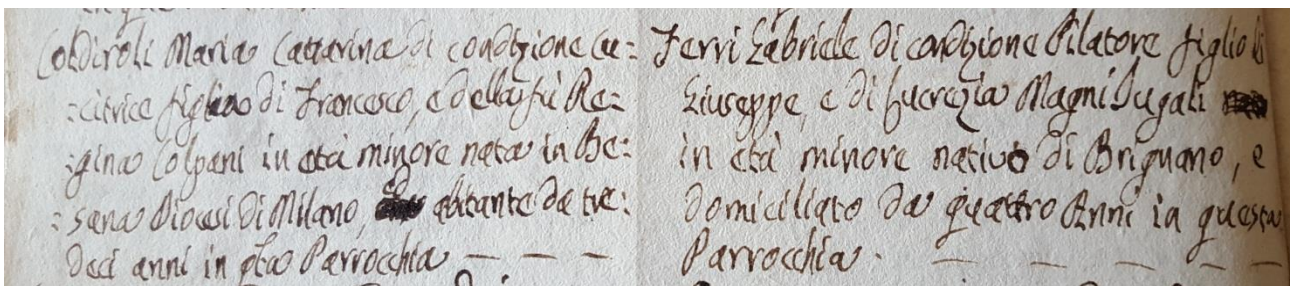 Coldiroli Maria Cattarina di condizione Cu=
=citrice figlia di Francesco, e della fù Re=
=gina Colpani in età minore nata in Be=
=sana Diocesi di Milano, abitante da tre=
dici anni in qta Parrocchia — — —
Ferri Gabriele di condizione Pilatore figlio di
Giuseppe, e di Lucrezia Magni Jugali
in età minore nativo di Brignano, e
domiciliato da quattro Anni in questa
Parrocchia. — — — — —